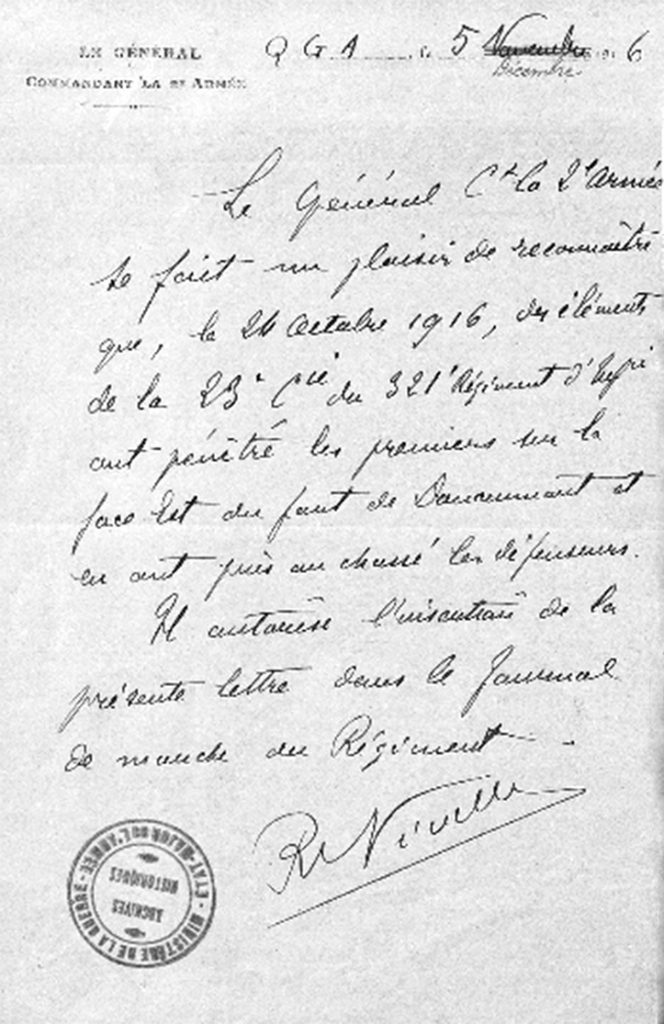 LE GÉNÉRAL
COMMANDANT LA 2e ARMÉE
Q G A, le 5 Novembre 1916
Décembre
Le Général Ct la 2e Armée
se fait un plaisir de reconnaître
que, le 24 Octobre 1916, des éléments
de la 23e Cie du 321e Régiment d'Infie
ont pénétré les premiers sur la
face Est du fort de Douaumont et
en ont pris ou chassé les défenseurs.
Il autorise l'insertion de la
présente lettre dans le Journal
de marche du Régiment.
R Nivelle
MINISTÈRE DE LA GUERRE - ETAT-MAJOR DE L'ARMÉE -
ARCHIVES
HISTORIQUES